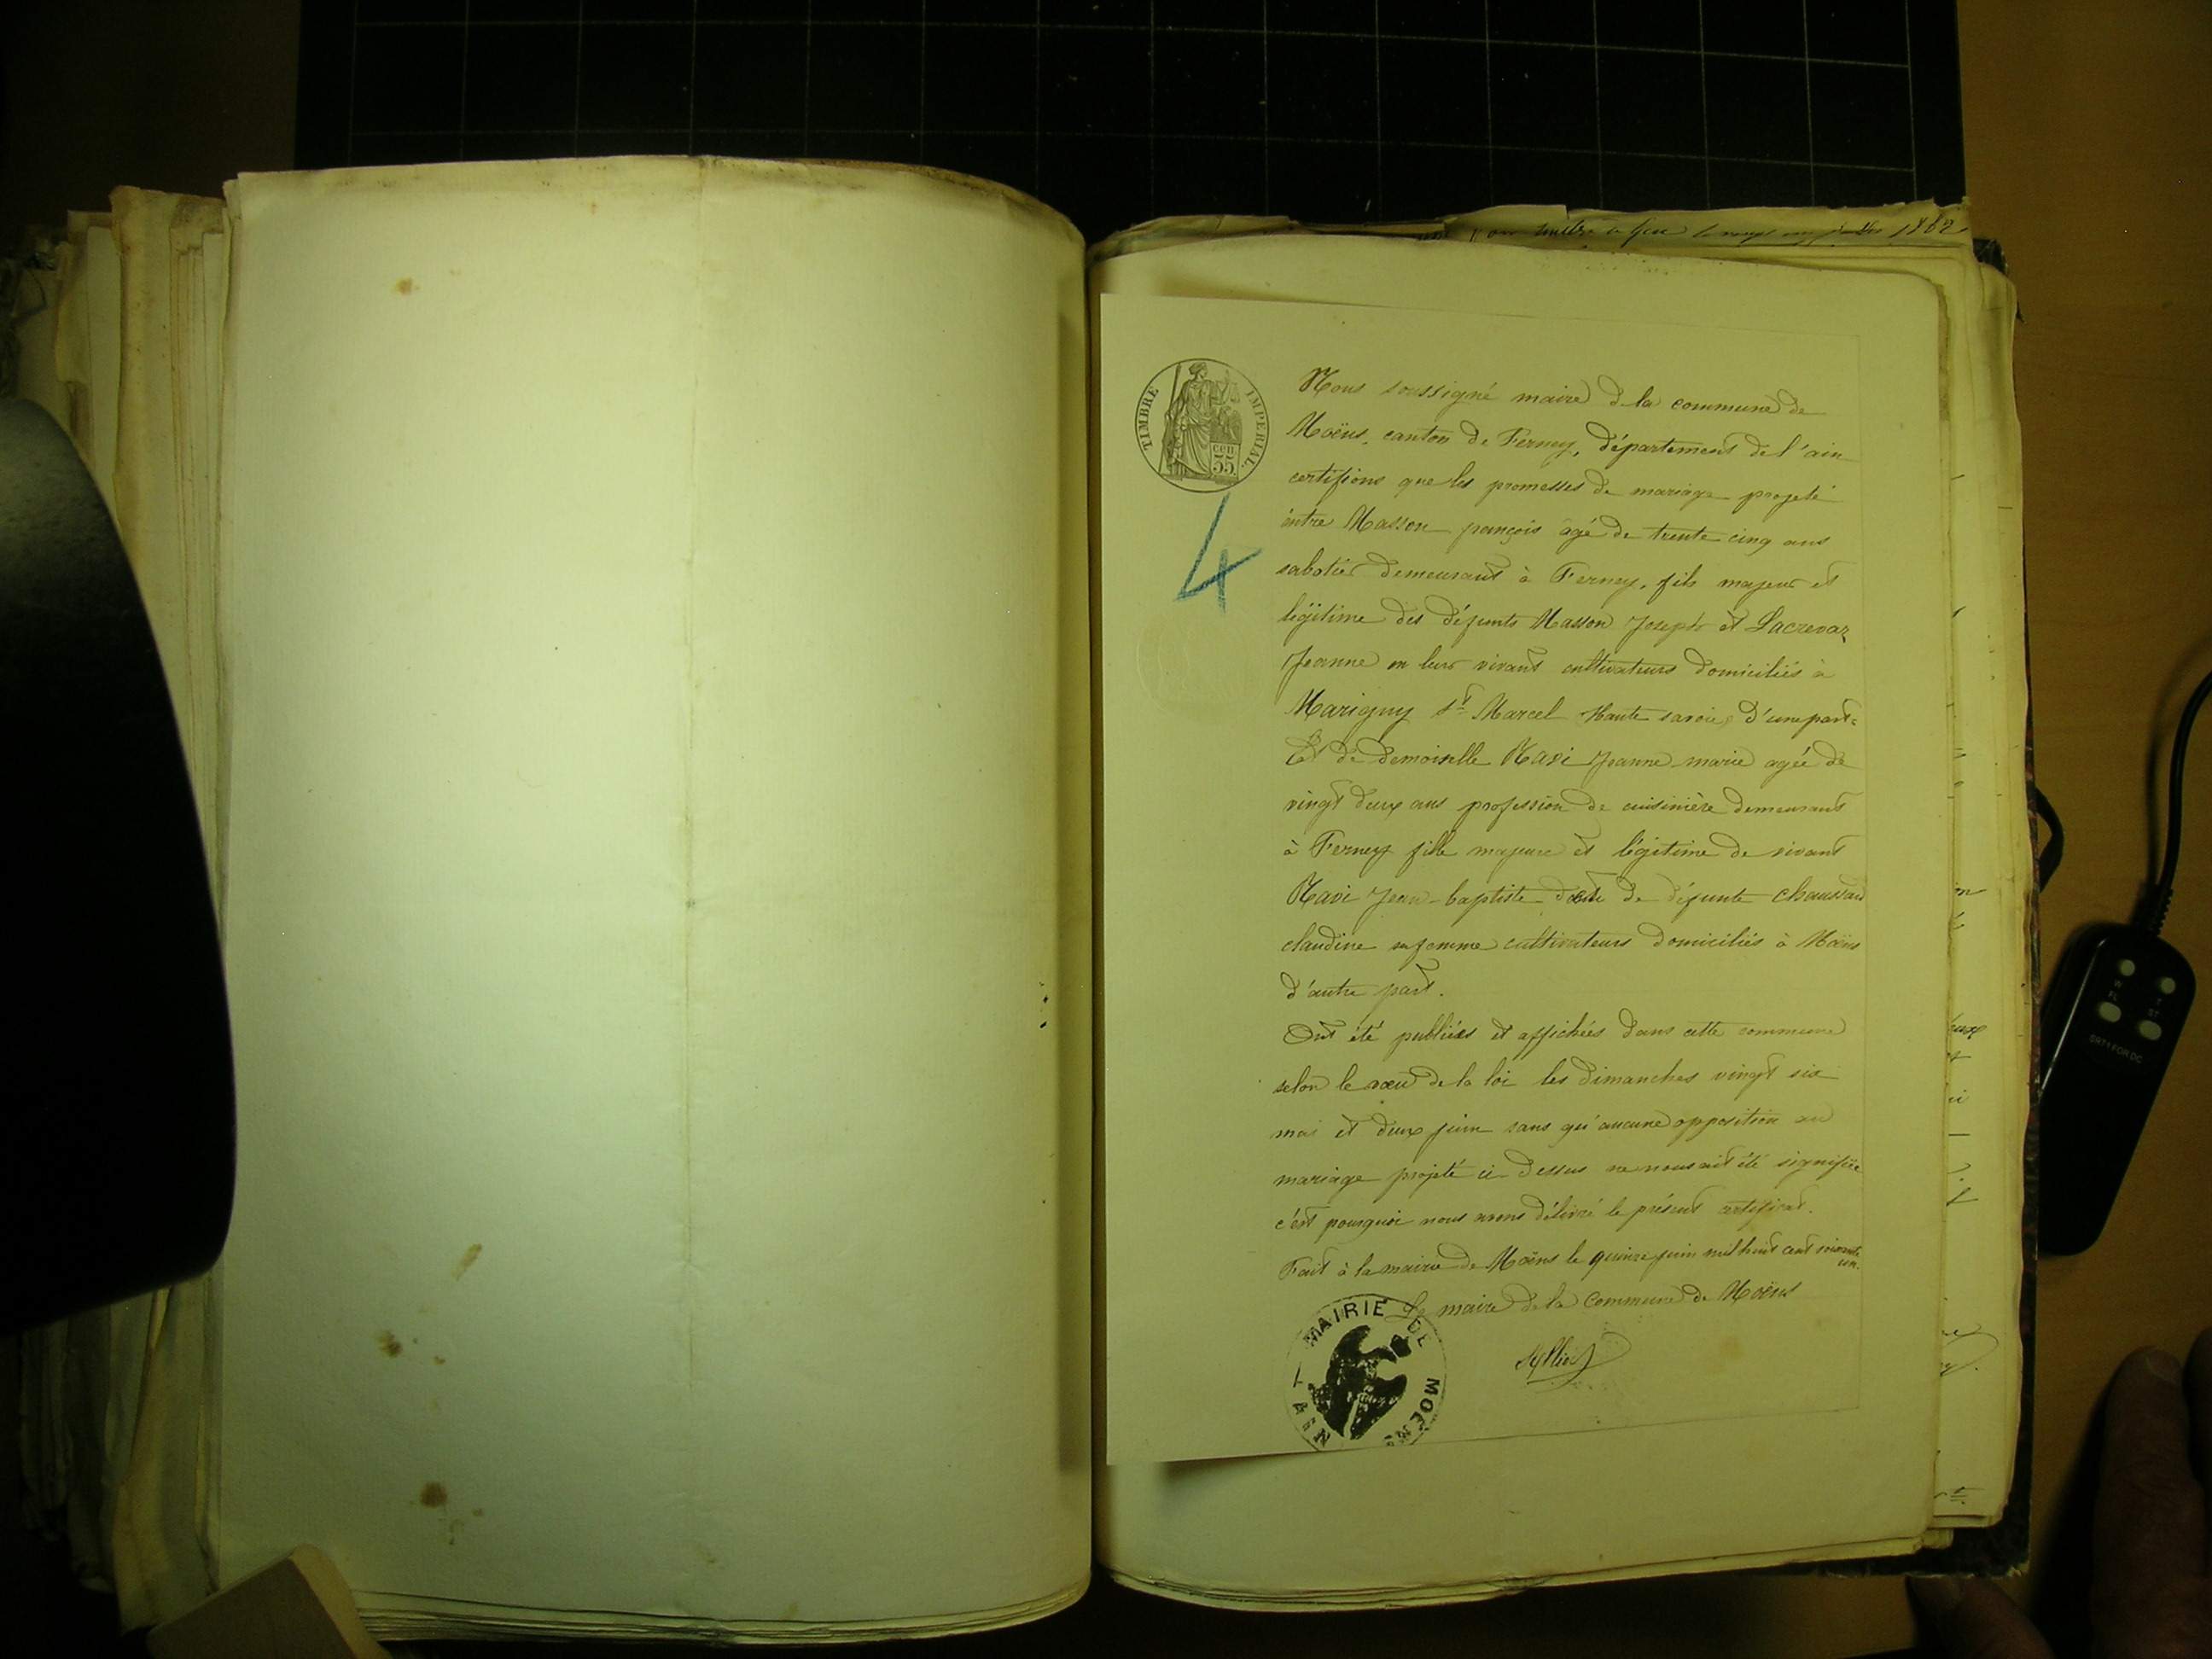 1862
TIMBRE IMPERIAL
Nous soussigné maire de la commune de
Moëns, canton de Ferney, département de l'ain
certifions que les promesses de mariage projeté
entre Masson françois âgé de trente cinq ans
sabotier demeurant à Ferney, fils majeur et
légitime des défunts Masson Joseph et Lacrevaz
Jeanne en leur vivant cultivateurs domiciliés à
Marigny St Marcel Haute savoie, d'une part-
Et de demoiselle Ravi Jeanne marie agée de
vingt deux ans profession de cuisinière demeurant
à Ferney fille majeure et légitime de vivant
Ravi Jean-baptiste de défunte chaussau
claudine sa femme cultivateurs domiciliés à Moëns
d'autre part.
Ont été publiées et affichées dans cette commune
selon le vœu de la loi les dimanches vingt six
mai et deux juin sans qu'aucune opposition au
mariage projeté ci-dessus ne nous ait été signifiée
c'est pourquoi nous avons délivré le présent certificat.
Fait à la mairie de Moëns le quinze juin mil huit cent soixante
un.
Le maire de la Commune de Moëns
MAIRIE DE MOËNS
AIN
4